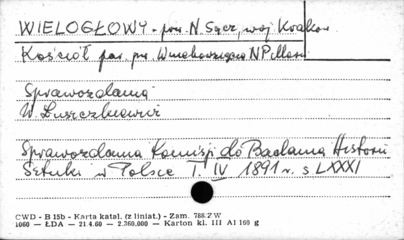 WIELOGŁOWY - pow. N. Sącz, woj. Kraków
Kościół par. pw. Wniebowzięcia N P Marii
Sprawozdania
W. Łuszczkiewicz
Sprawozdania Komisji do Badania Historii
Sztuki w Polsce T. IV 1891 r. s LXXXI
CWD - B 15b - Karta katal. (z liniat.) - Zam. 788/Z W
1060 — ŁDA — 21.4.60 — 2.360.000 — Karton kl. III A1 160 g